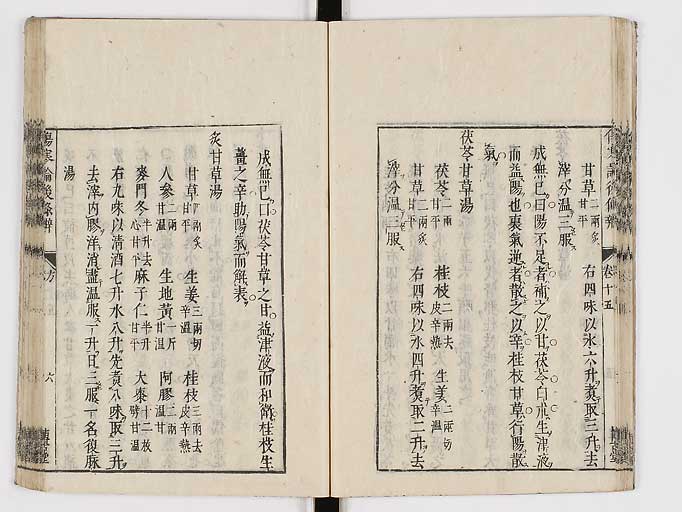 甘草二兩炙甘平 右四味以水六升煑取三升去
滓分溫三服
成無已曰陽不足者補之以甘茯苓白朮生津液
而益陽也裏氣逆者散之以辛桂枝甘草行陽散
氣
茯苓甘草湯
茯苓二兩甘平 桂枝二兩去皮辛熱 生姜三兩切辛溫
甘草一兩炙甘平 右四味以水四升煑取二升去
滓分溫三服
卷十五
成無已曰茯苓甘草之甘益津液而和衞桂枝生
薑之辛助陽氣而解表
炙甘草湯
甘草四兩炙甘平 生姜三兩切辛溫 桂枝三兩去皮辛熱
人參二兩甘溫 生地黃一斤甘溫 阿膠二兩甘溫
麥門冬半升去心甘平 麻子仁半升甘平 大棗十二枚劈甘溫
右九味以清酒七升水八升先煑八味取三升
去滓內膠洋消盡溫服一升日三服一名復脉
湯
傷寒論後條辨
方
六